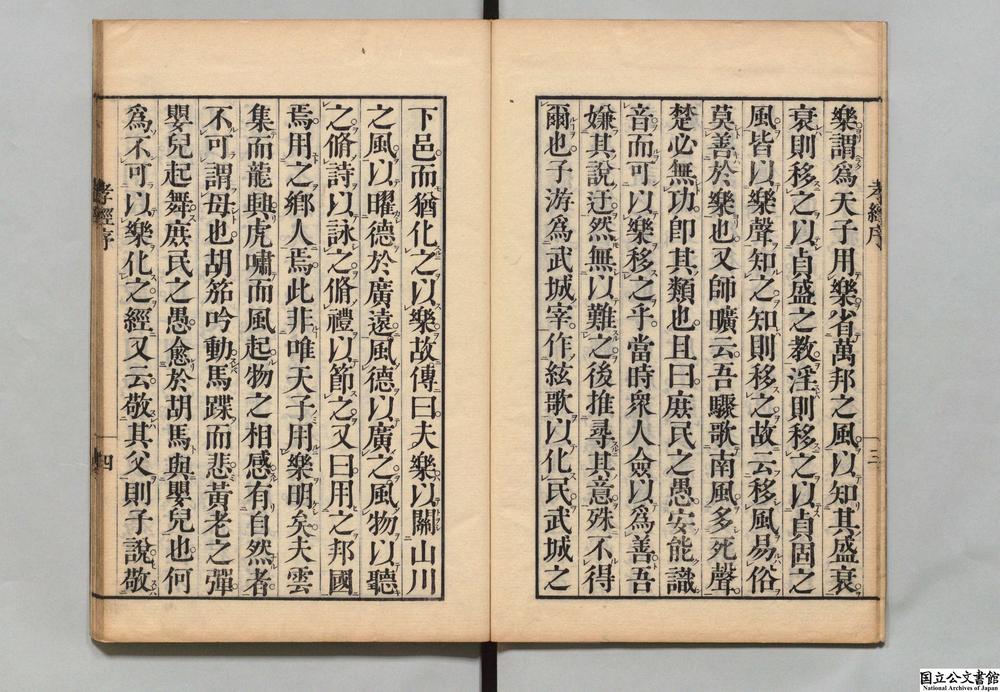 孝經序
樂謂爲天子用樂省萬邦之風以知其盛衰
衰則移之以貞盛之教淫則移之以貞固之
風皆以樂聲知之知則移之故云移風易俗
莫善於樂也又師曠云吾驟歌南風多死聲
楚必無功卽其類也且曰庶民之愚安能識
音而可以樂移之乎當時衆人僉以爲善吾
嫌其說迂然無以難之後推尋其意殊不得
爾也子游爲武城宰作絃歌以化民武城之
三
下邑而猶化之以樂故傳曰夫樂以關山川
之風以曜德於廣遠風德以廣之風物以聽
之脩詩以詠之脩禮以節之又曰用之邦國
焉用之鄉人焉此非唯天子用樂明矣夫雲
集而龍興虎嘯而風起物之相感有自然者
不可謂母也胡笳吟動馬蹀而悲黃老之彈
嬰兒起舞庶民之愚愈於胡馬與嬰兒也何
爲不可以樂化之經又云敬其父則子說敬
孝經序
四
国立公文書館
National Archives of Japan